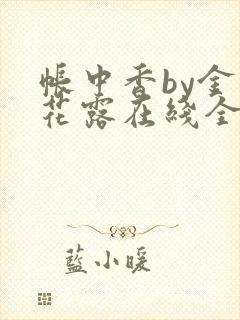 帳中香by金
花露在綫全
藍小暖